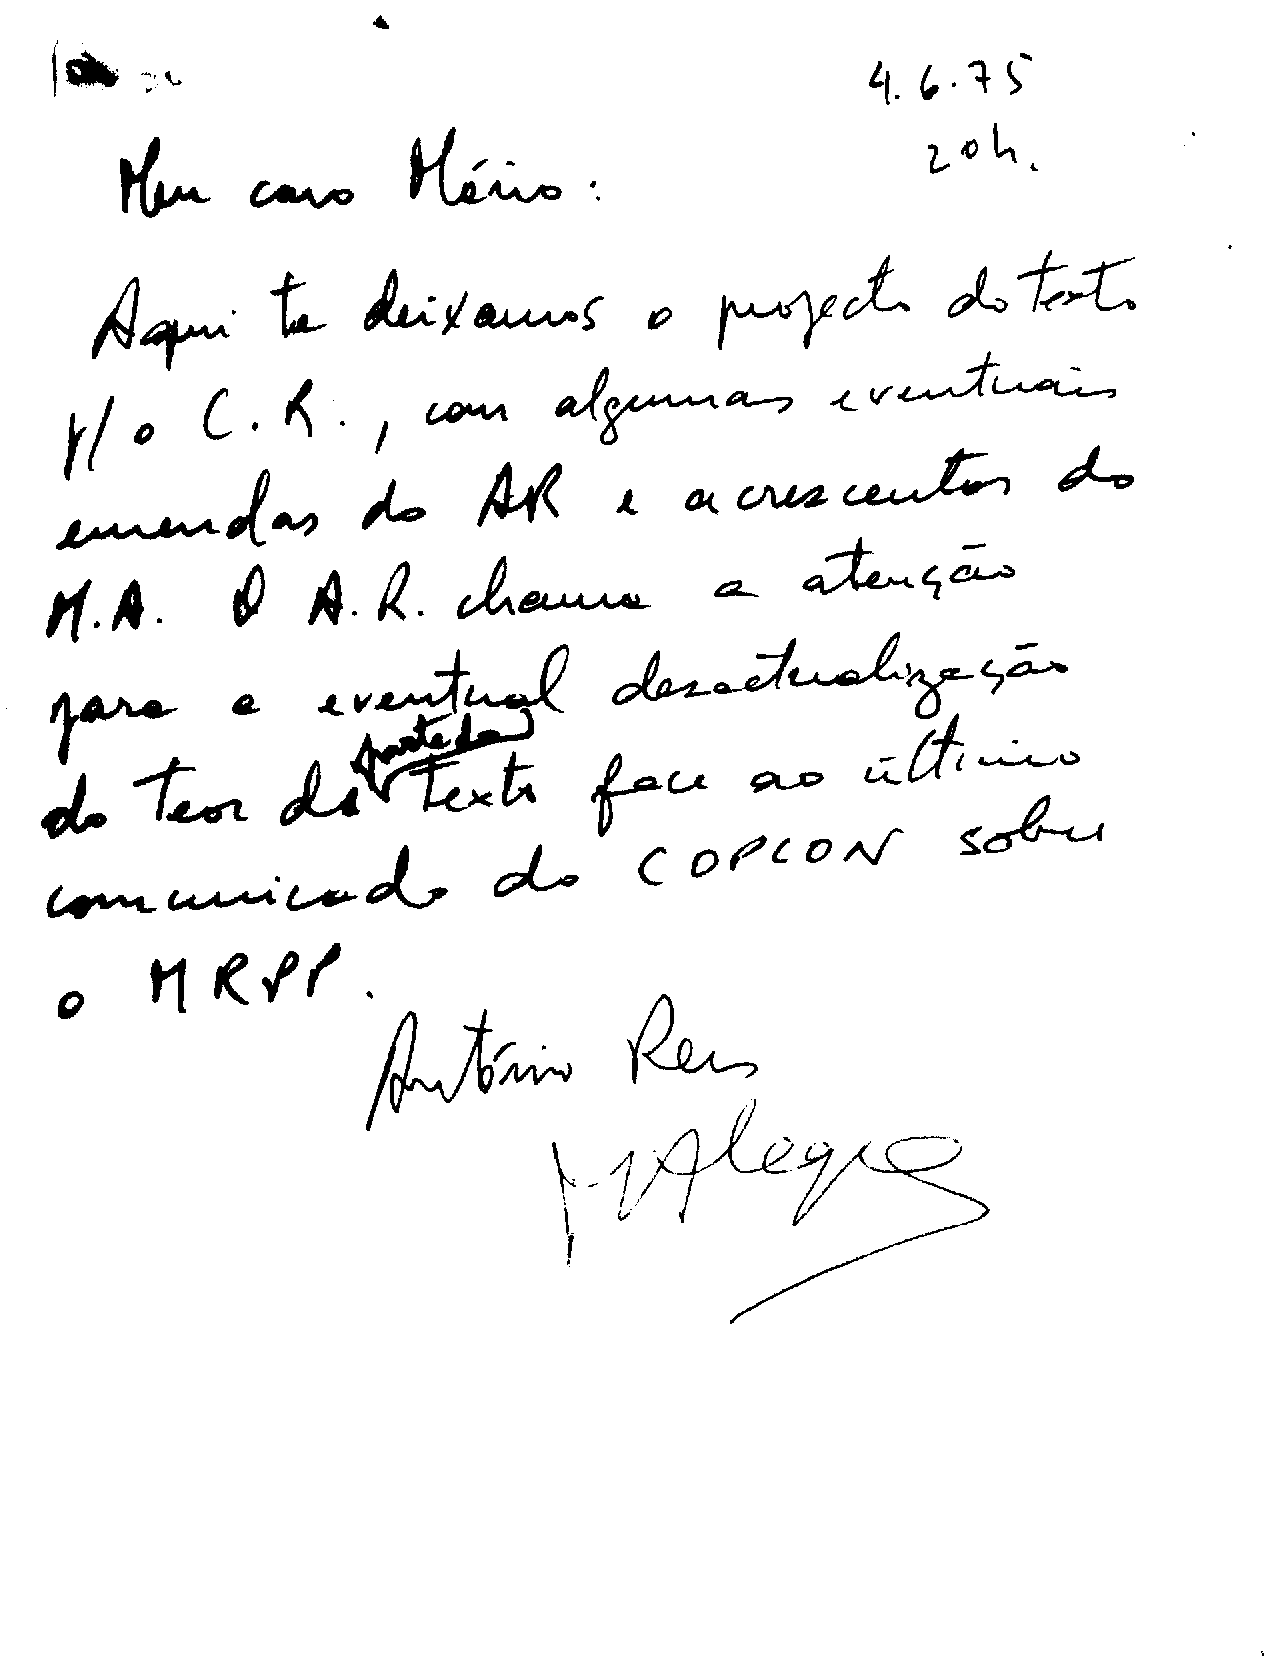 4.6.75
20h.
Meu caro Mário:
Aqui te deixamos o projecto do texto
p/ o C.R., com algumas eventuais
emendas do AR e acrescentos do
M.A. O A.R. chama a atenção
para a eventual desactualização
parte do
do teor de texto face ao último
comunicado do COPCON sobre
o MRPP.
António Reis
M Alegre